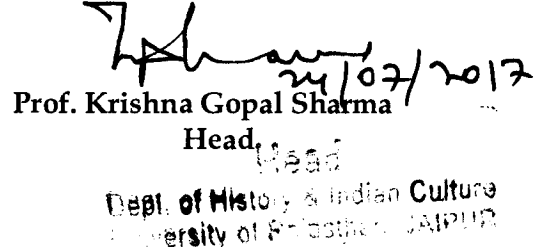 24/07/2017
Prof. Krishna Gopal Sharma
Head,
Head
Dept. of History & Indian Culture
University of Rajasthan, JAIPUR